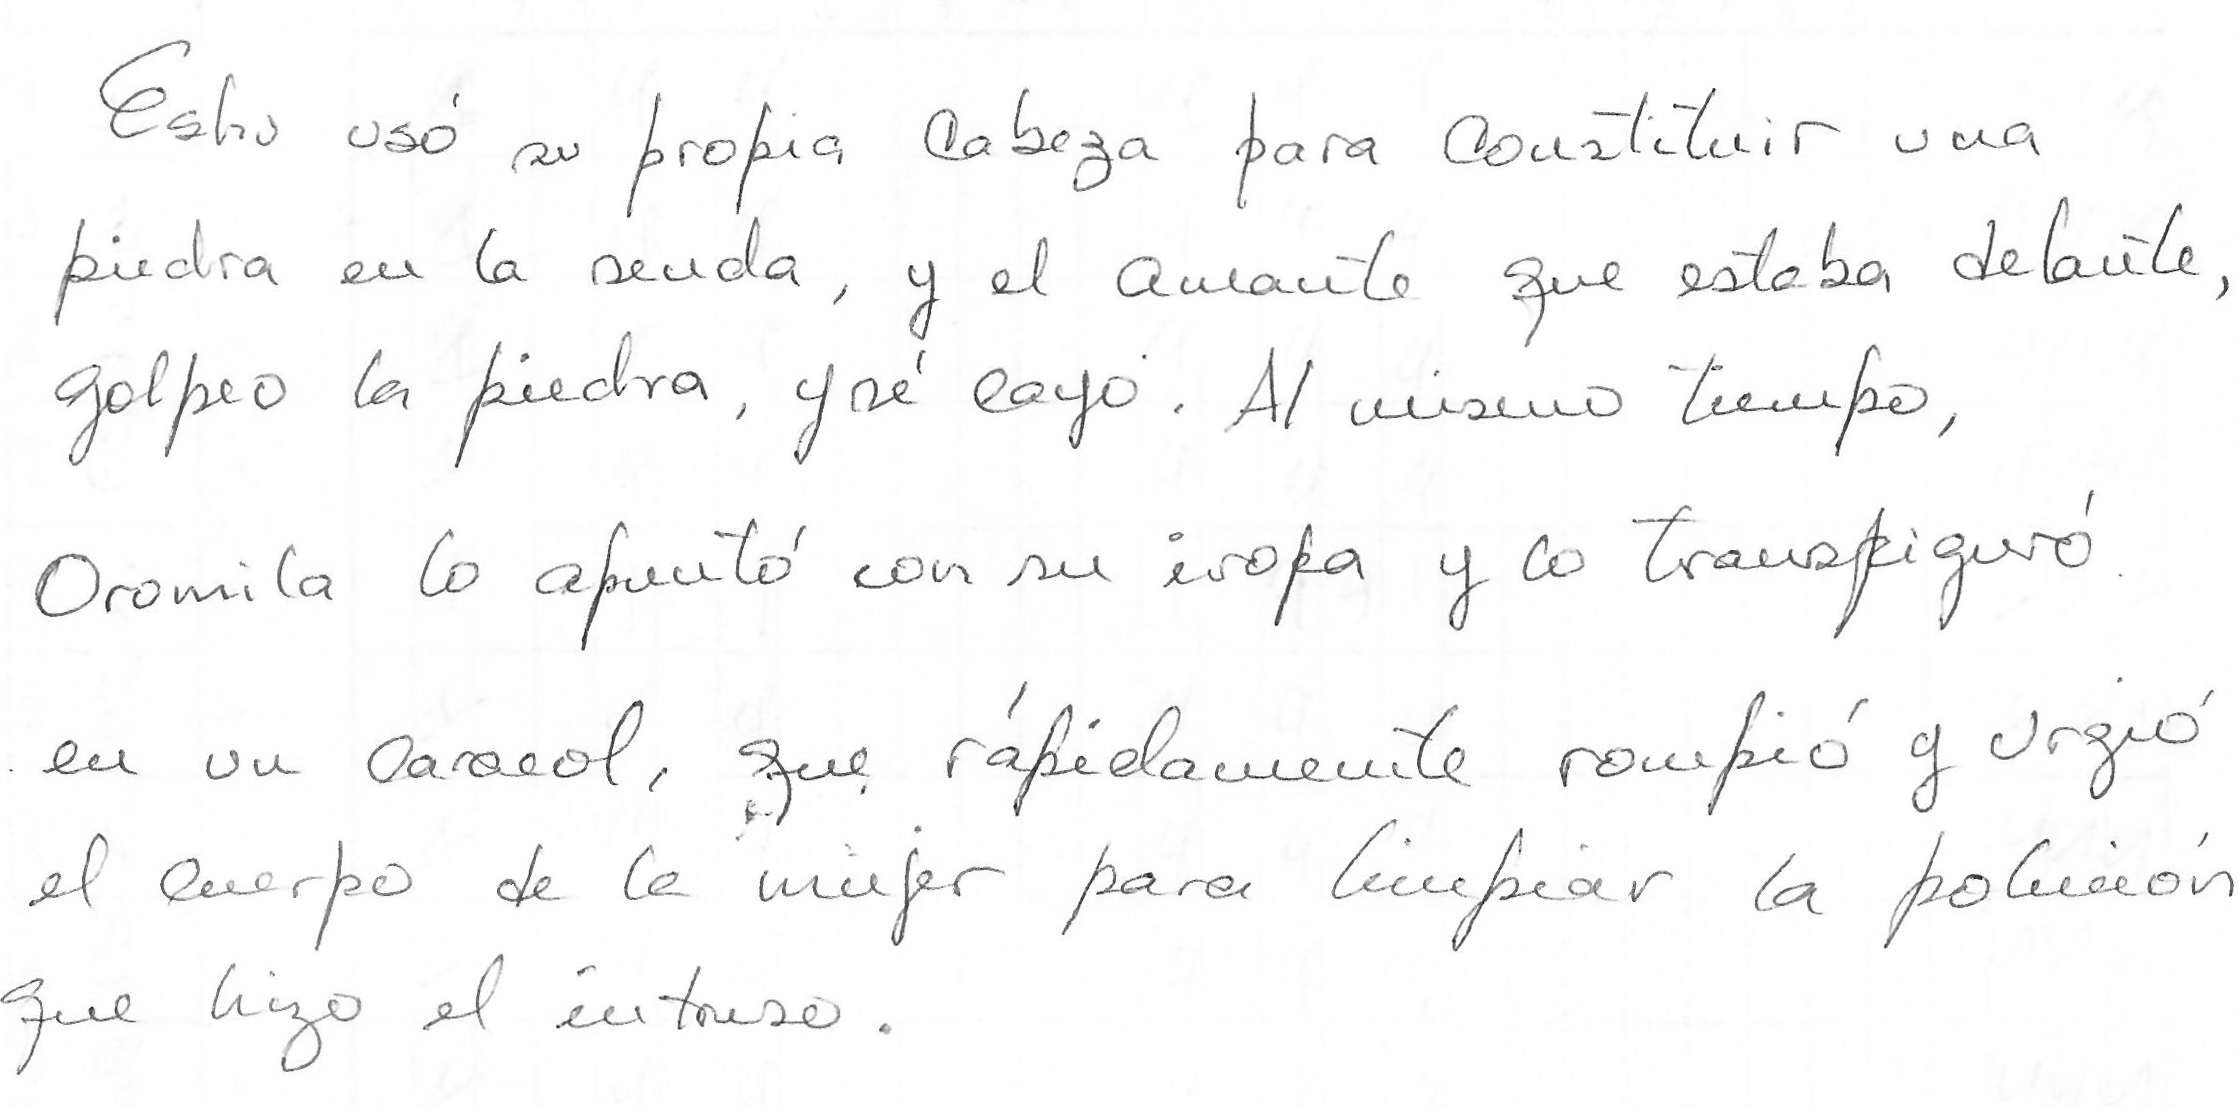 Eshu usó su propia cabeza para constituir una
piedra en la senda, y el amante que estaba delante,
golpeo la piedra, y sé cayó. Al mismo tiempo,
Oromila lo apuntó con su irofa y lo transfiguró
en un caracol, que rápidamente rompió y urgió
el cuerpo de la mujer para limpiar la polución
que hizo el intruso.